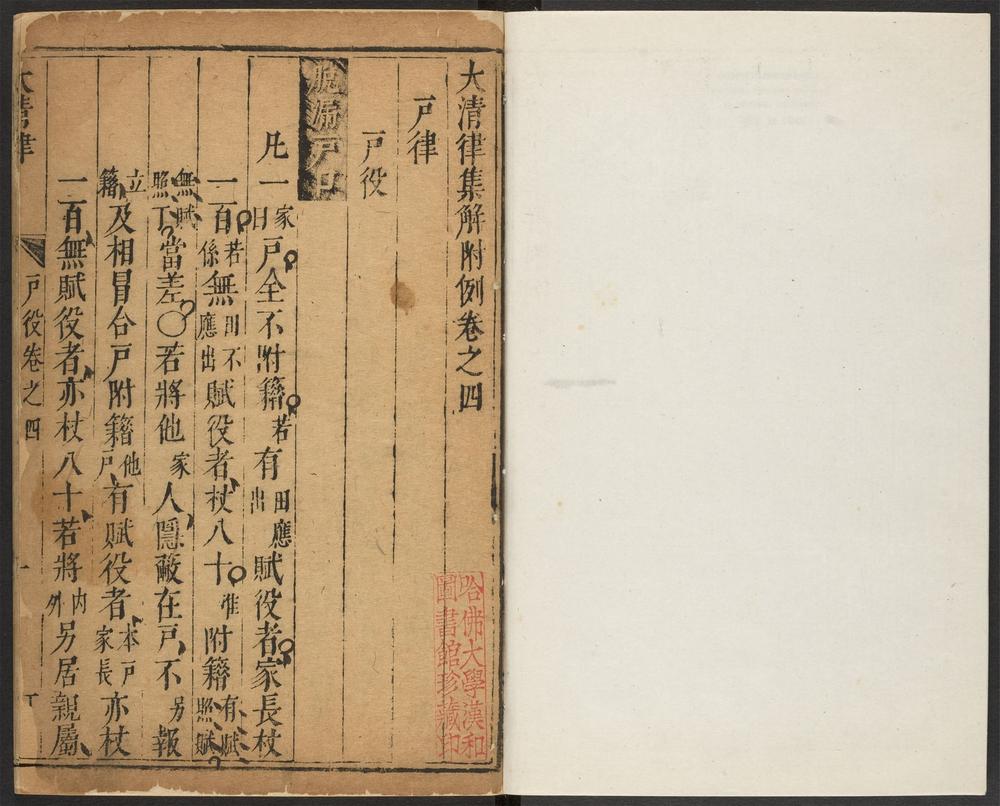 大清律集解附例卷之四
戶律
戶役
脫漏戶口
凡一家曰戶全不附籍若有田應出賦役者家長杖
一百若係無田不應出賦役者杖八十准附籍有賦照賦
無賦照丁當差○若將他家人隱蔽在戶不另報
立籍及相冒合戶附籍他戶有賦役者本戶家長亦杖
一百無賦役者亦杖八十若將內外另居親屬
大清律
戶役卷之四
一
哈佛大學漢和
圖書館珍藏印